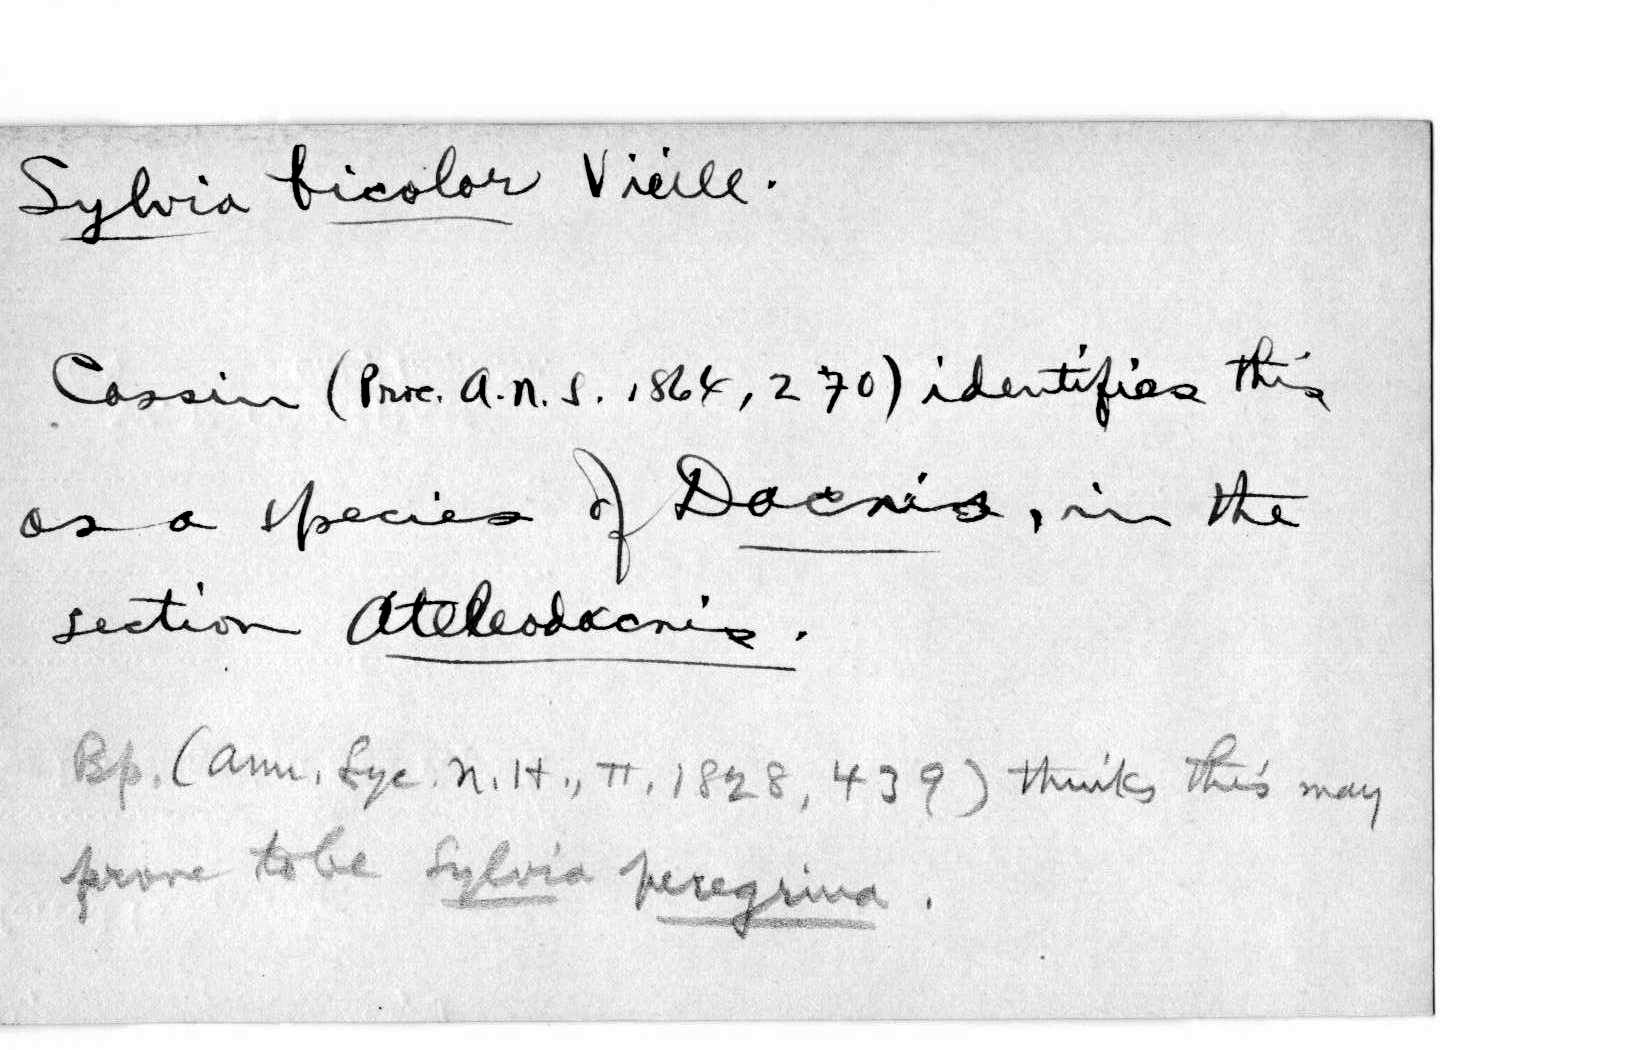 Sylvia bicolor Vieill.
Cassin (Proc. A.N.S. 1864, 270) identifies this
as a species of Dacnis, in the
section Ateleodacnis.
Bp. (Ann. Lyc. N.H., II, 1828, 439) thinks this may
prove to be Sylvia peregrina.